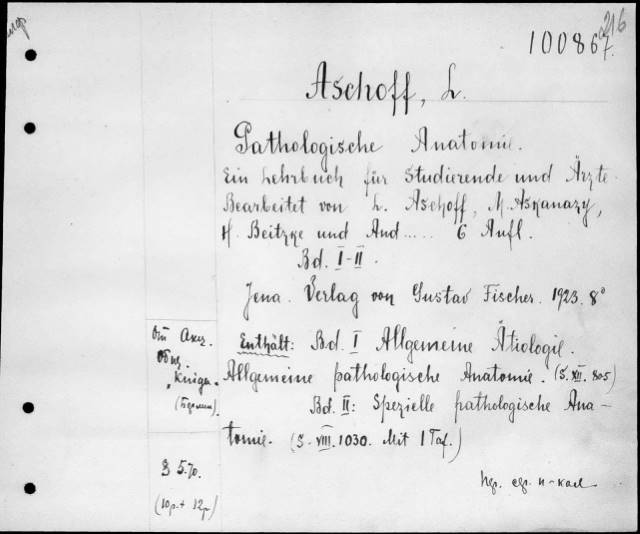 216
100867.
Aschoff, L.
Pathologische Anatomie.
Ein Lehrbuch für Studierende und Ärzte.
Bearbeitet von L. Aschoff, M. Askanazy,
H. Beitzke und And..... 6 Aufl.
Bd. I-II.
Jena. Verlag von Gustav Fischer. 1923. 8°
От Акц.
Общ.
"Книга"
(Берлин)
Enthält: Bd. I Allgemeine Ätiologie.
Allgemeine pathologische Anatomie. (S. XII. 805)
Bd. II: Spezielle pathologische Ana-
tomie. (S. VIII. 1030. Mit 1 Taf.)
5.70.
(10р.+12р)